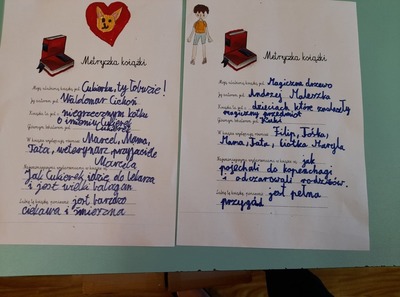 Metryczka książki
Moja ulubiona książka to: Cukierku, ty łobuzie!
Jej autorem jest: Waldemar Cichoń
Książka ta jest o: niegrzecznym kotku
o imieniu Cukierek
Głównym bohaterem jest: Cukierek
W książce występują również: Marcel, Mama,
Tata, weterynarz, przyjaciele
Marcela
Jak Cukierek idzie do lekarza
i jest wielki bałagan
Lubię tę książkę, ponieważ: jest bardzo
ciekawa i śmieszna
Metryczka książki
Moja ulubiona książka to: Magiczne drzewo
Jej autorem jest: Andrzej Maleszka
Książka ta jest o: dzieciach, które znalazły
magiczny przedmiot
Głównym bohaterem jest: Kuki
W książce występują również: Filip, Tośka,
Mama, Tata, ciotka Maryla
jak
pojechali do Kopenhagi
i odczarowali rodziców.
Lubię tę książkę, ponieważ: jest pełna
przygód